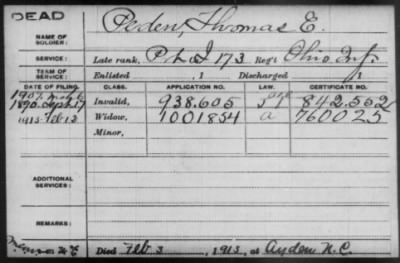 DEAD
NAME OF SOLDIER: Peden, Thomas E.
SERVICE: Late rank, Pt. I 173 Reg't Ohio Inf.
TERM OF SERVICE: Enlisted , 1 Discharged , 1
DATE OF FILING. CLASS. APPLICATION NO. LAW. CERTIFICATE NO.
1890 Sept 17 Invalid, 938.605 842.552
1913 Feb 13 Widow, 1001854 a 760025
Minor,
ADDITIONAL SERVICES:
REMARKS:
Died Feb 3 , 1913, at Ayden N.C.